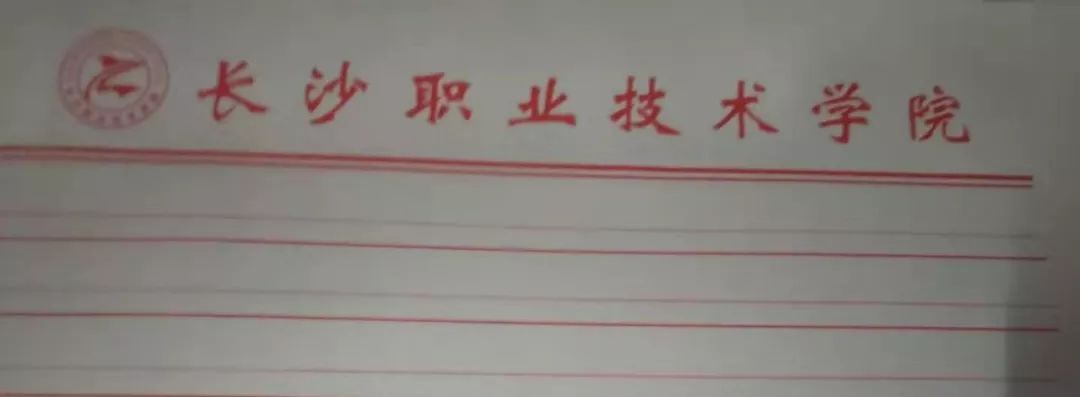 长沙职业技术学院